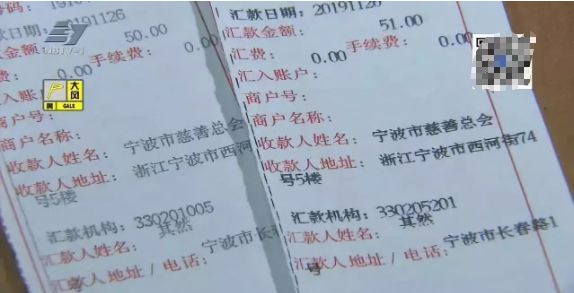 20191126
50.00
手续费:
0.00
0.00
商户号:
商户名称:
收款人姓名: 宁波市慈善总会
收款人地址: 浙江宁波市西河
号5楼
汇款机构: 330201005
汇款人姓名: 其然
汇款人地址/电话: 宁波市长
汇款日期: 20191126
汇款金额: 51.00
汇费: 0.00 手续费: 0.00
汇入账户:
商户号:
商户名称:
收款人姓名: 宁波市慈善总会
收款人地址: 浙江宁波市西河街74
号5楼
汇款机构: 330205201
汇款人姓名: 其然
汇款人地址/电话: 宁波市长春路1
号
大风
GALE